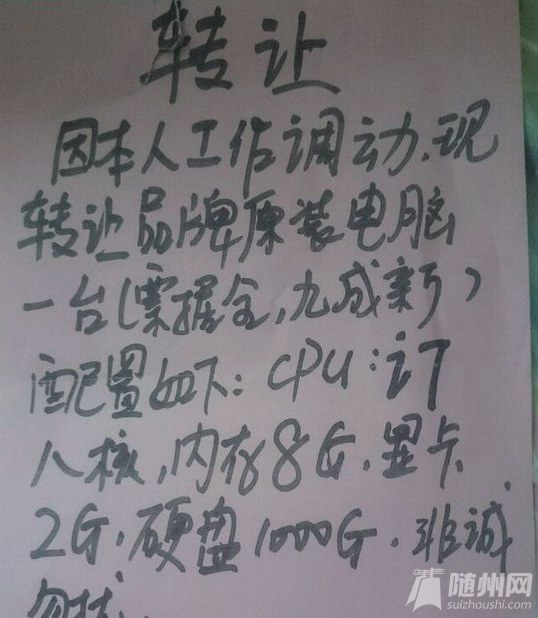 转让
因本人工作调动、现
转让品牌原装电脑
一台(票握全,九成新)
配置如下:CPU:i7
八核,内存8G.显卡
2G,硬盘1000G.非诚
勿扰.
随州网
suizhoushi.com